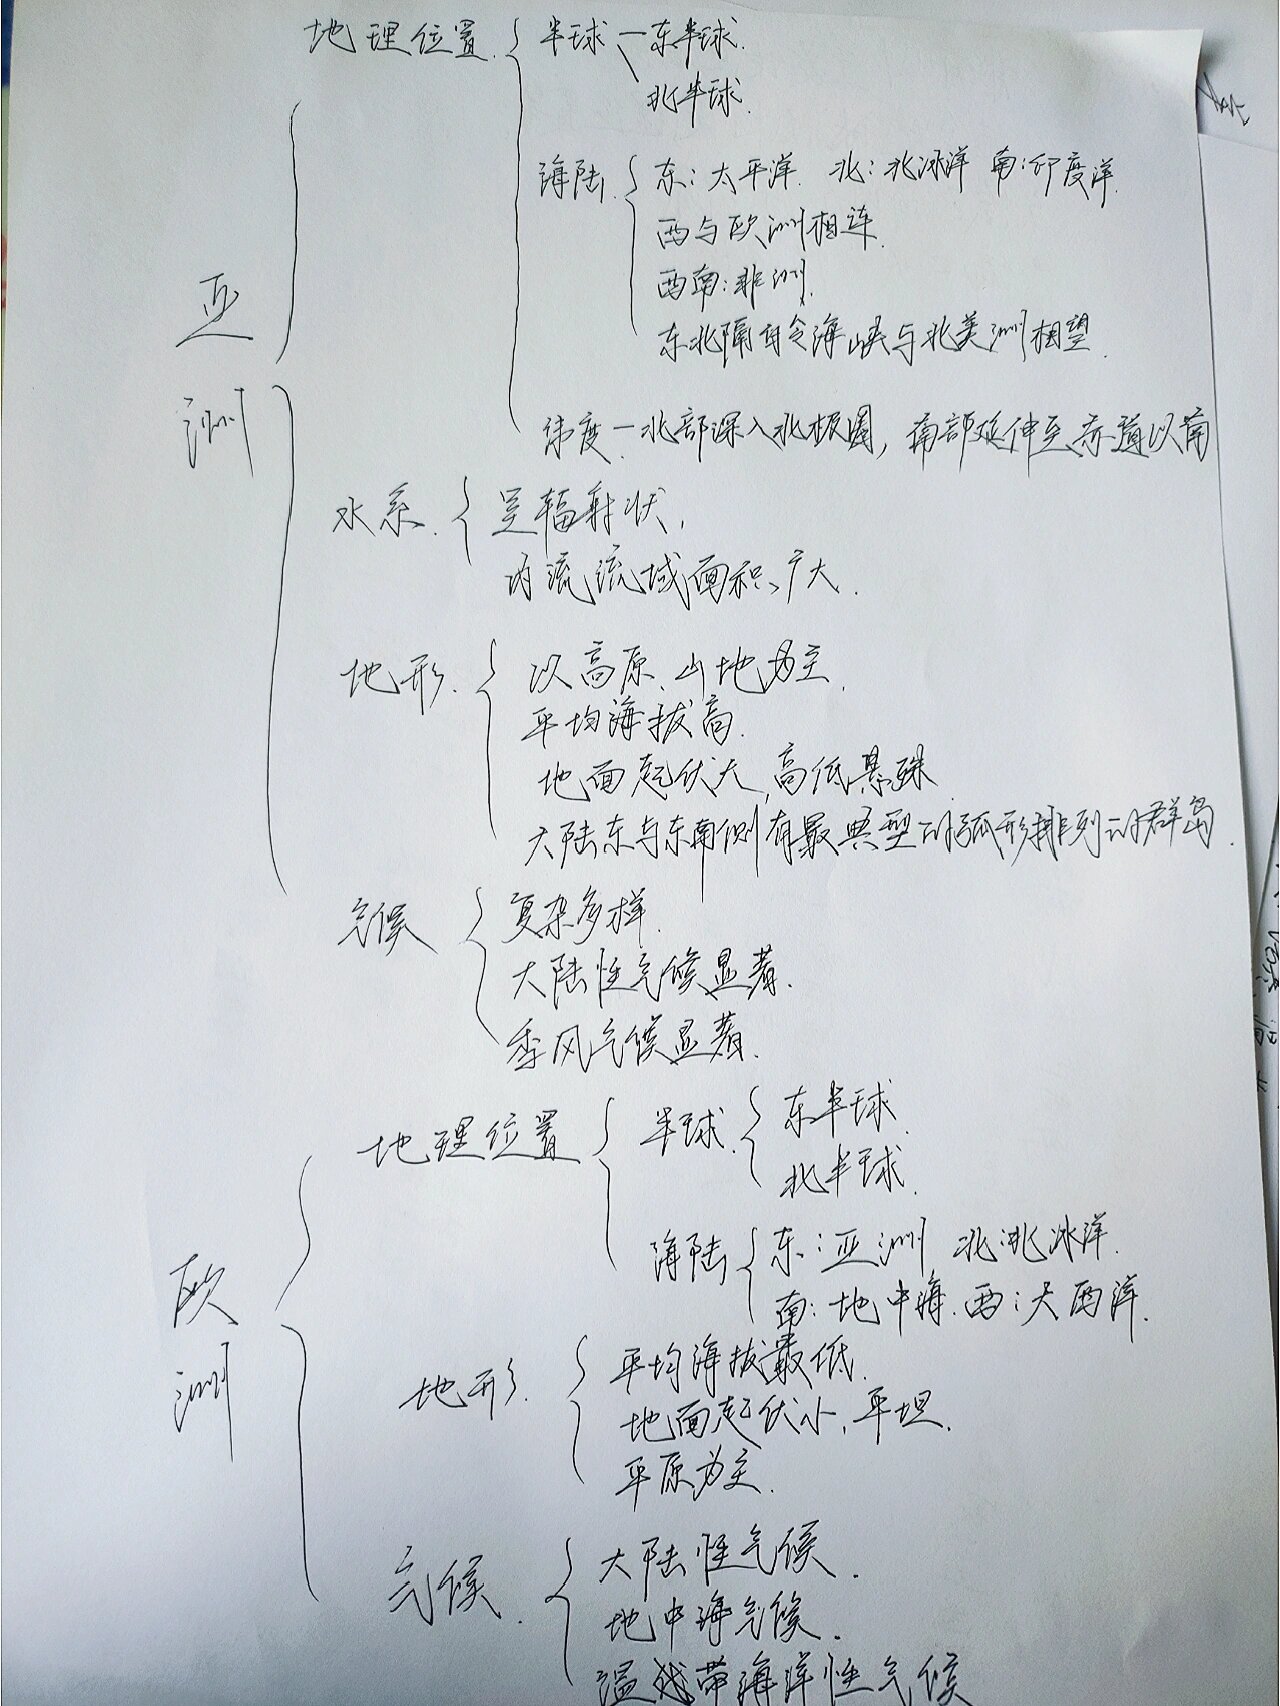 地理位置 半球 — 东半球.
北半球.
海陆 东:太平洋. 北:北冰洋 南:印度洋.
西与欧洲相连.
西南:非洲.
亚洲
东北隔白令海峡与北美洲相望.
纬度 — 北部深入北极圈, 南部延伸至赤道以南
水系. 呈辐射状,
内流流域面积广大.
地形. 以高原、山地为主.
平均海拔高.
地面起伏大,高低悬殊
大陆东与东南侧有最典型的弧形排列的群岛.
气候 复杂多样.
大陆性气候显著.
季风气候显著.
地理位置 半球. 东半球.
北半球.
海陆 东:亚洲 北:北冰洋.
欧洲
南:地中海. 西:大西洋.
地形. 平均海拔最低.
地面起伏小,平坦.
平原为主.
气候. 大陆性气候.
地中海气候.
温带海洋性气候